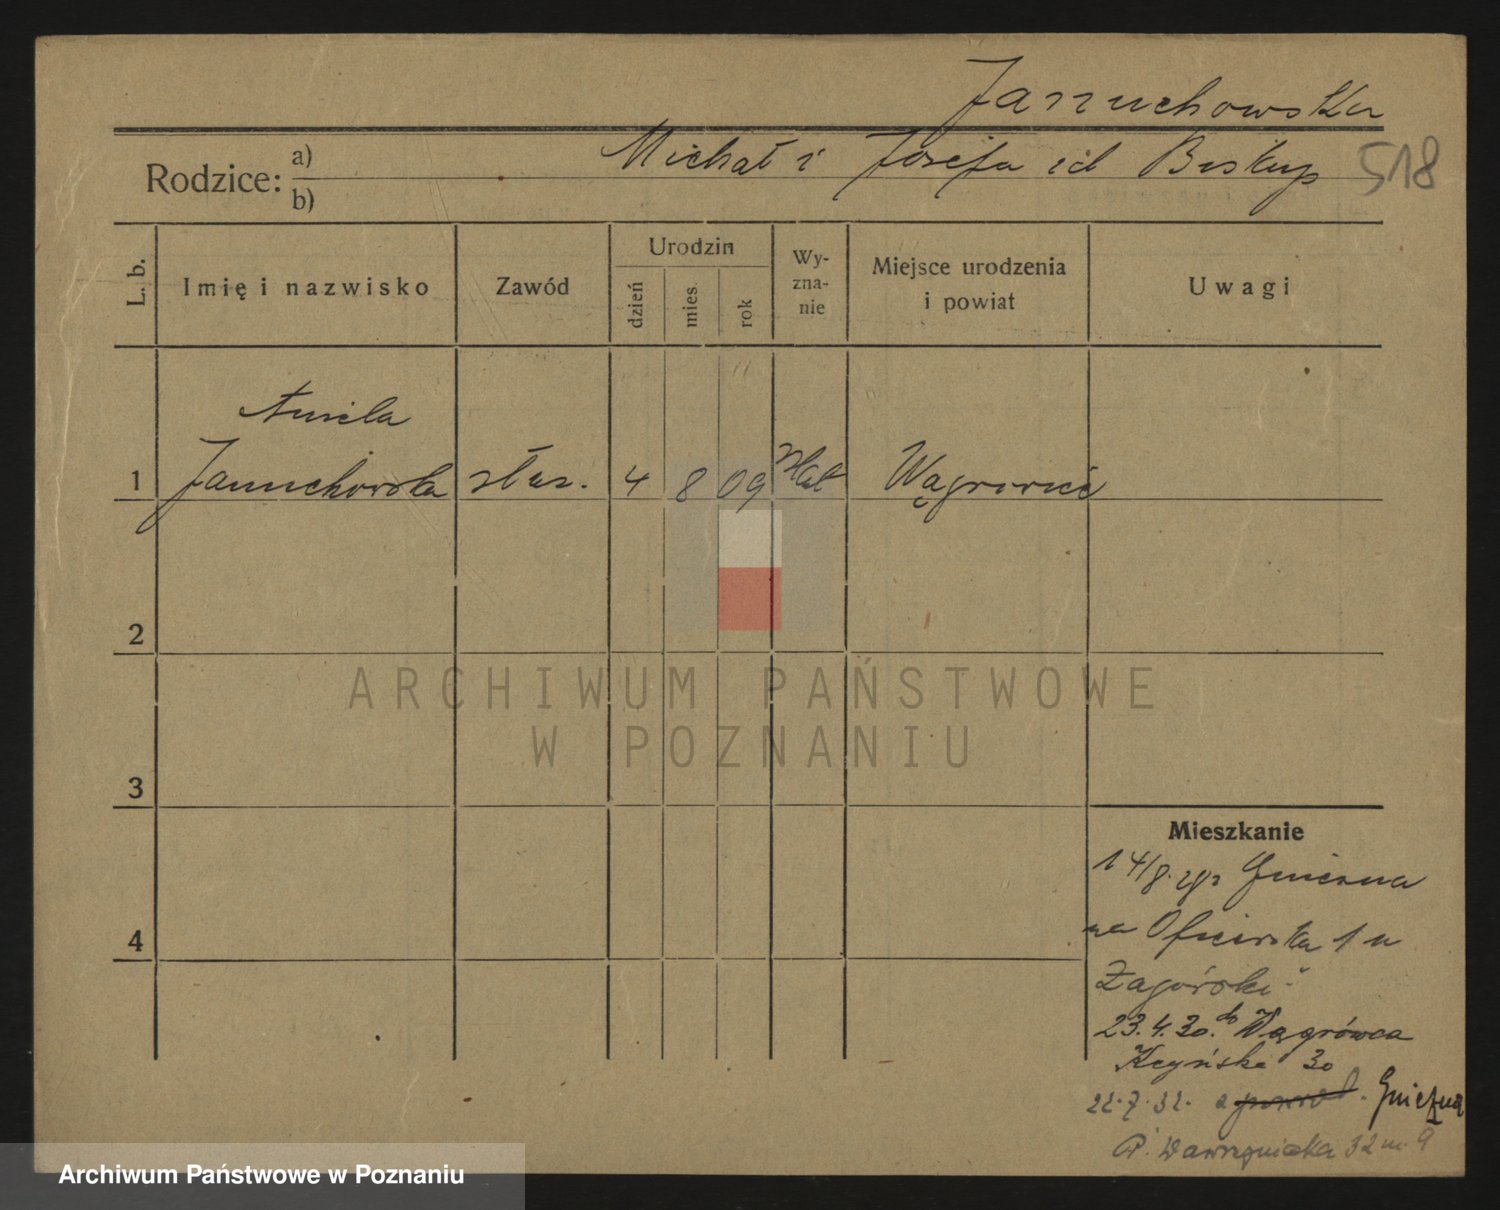 Januchowska
Rodzice: a) Michał i Józefa id Biskup 518
b)
L. b. Imię i nazwisko Zawód Urodzin dzień mies. rok Wy-zna-nie Miejsce urodzenia i powiat Uwagi
Aniela
1 Januchowska służ. 4 8 09 Wągrowiec
2
ARCHIWUM PAŃSTWOWE
W POZNANIU
3
Mieszkanie
14/8. Gniezna
na Oficerska 1 u
4
Zagórski
23.4.30. do Wągrówca
Kcyńska 30
22.7.32. z Gniezna
Wawrzyniaka 32 m. 9
Archiwum Państwowe w Poznaniu